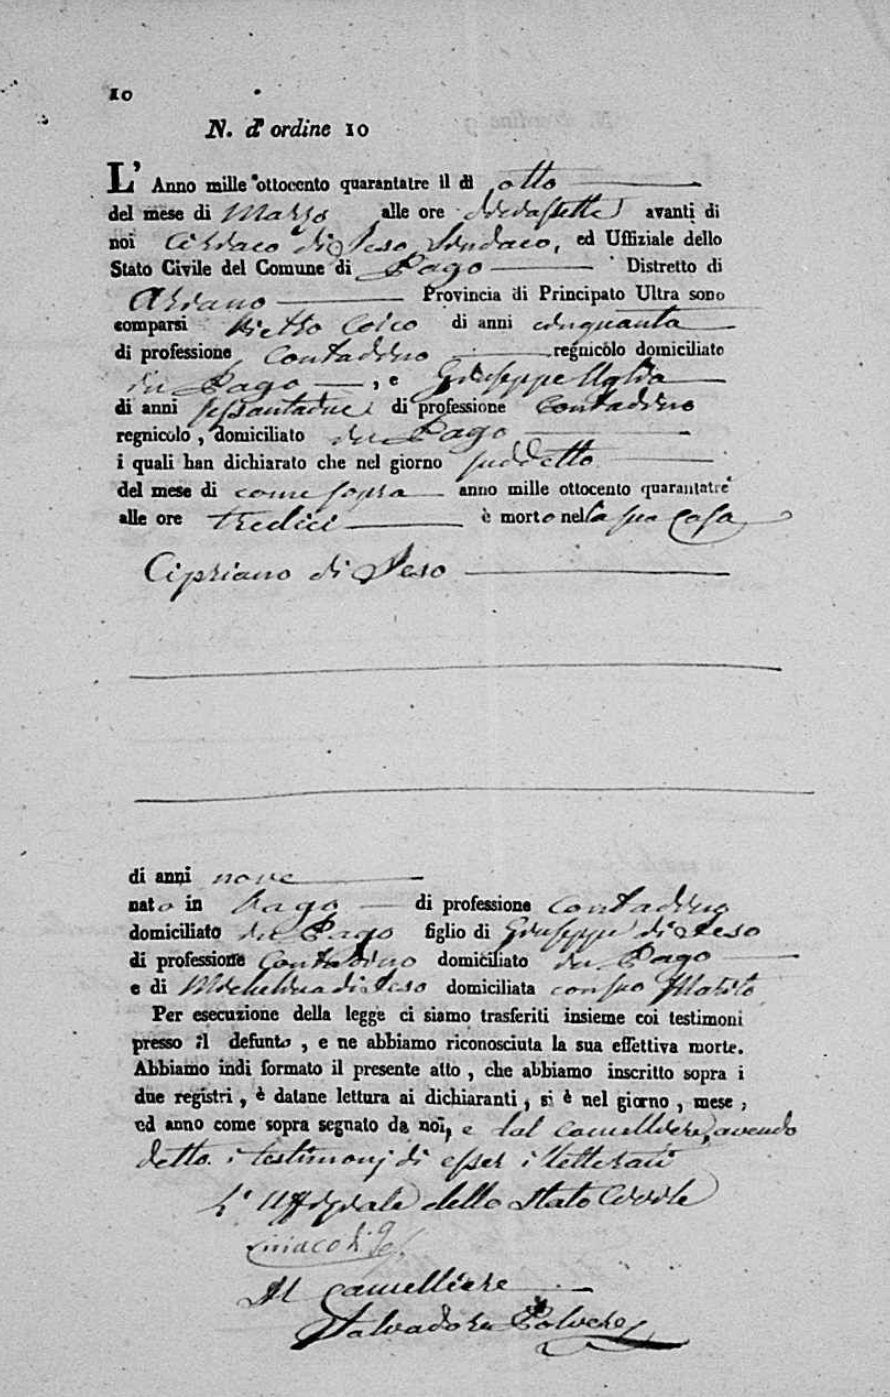 10
N. d' ordine 10
L' Anno mille ottocento quarantatre il dì otto
del mese di Marzo alle ore diciassette avanti di
noi Ciriaco di Peso Sindaco, ed Uffiziale dello
Stato Civile del Comune di Pago Distretto di
Ariano Provincia di Principato Ultra sono
comparsi Pietro Coico di anni cinquanta
di professione Contadino regnicolo domiciliato
in Pago, e Giuseppe Uglia
di anni sessantadue di professione Contadino
regnicolo, domiciliato in Pago
i quali han dichiarato che nel giorno suddetto
del mese di come sopra anno mille ottocento quarantatrè
alle ore tredici è morto nella sua Casa
Cipriano di Peso
di anni nove
nato in Pago di professione contadino
domiciliato in Pago figlio di Giuseppe di Peso
di professione Contadino domiciliato in Pago
e di Michelina di Peso domiciliata con suo Marito
Per esecuzione della legge ci siamo trasferiti insieme coi testimoni
presso il defunto, e ne abbiamo riconosciuta la sua effettiva morte.
Abbiamo indi formato il presente atto, che abbiamo inscritto sopra i
due registri, è datane lettura ai dichiaranti, si è nel giorno, mese,
ed anno come sopra segnato da noi, e dal cancelliere, avendo
detto i testimonj di esser illetterati
L' Uffiziale dello Stato Civile
Ciriaco di Pes.
Il Cancelliere
Salvadore Polvere